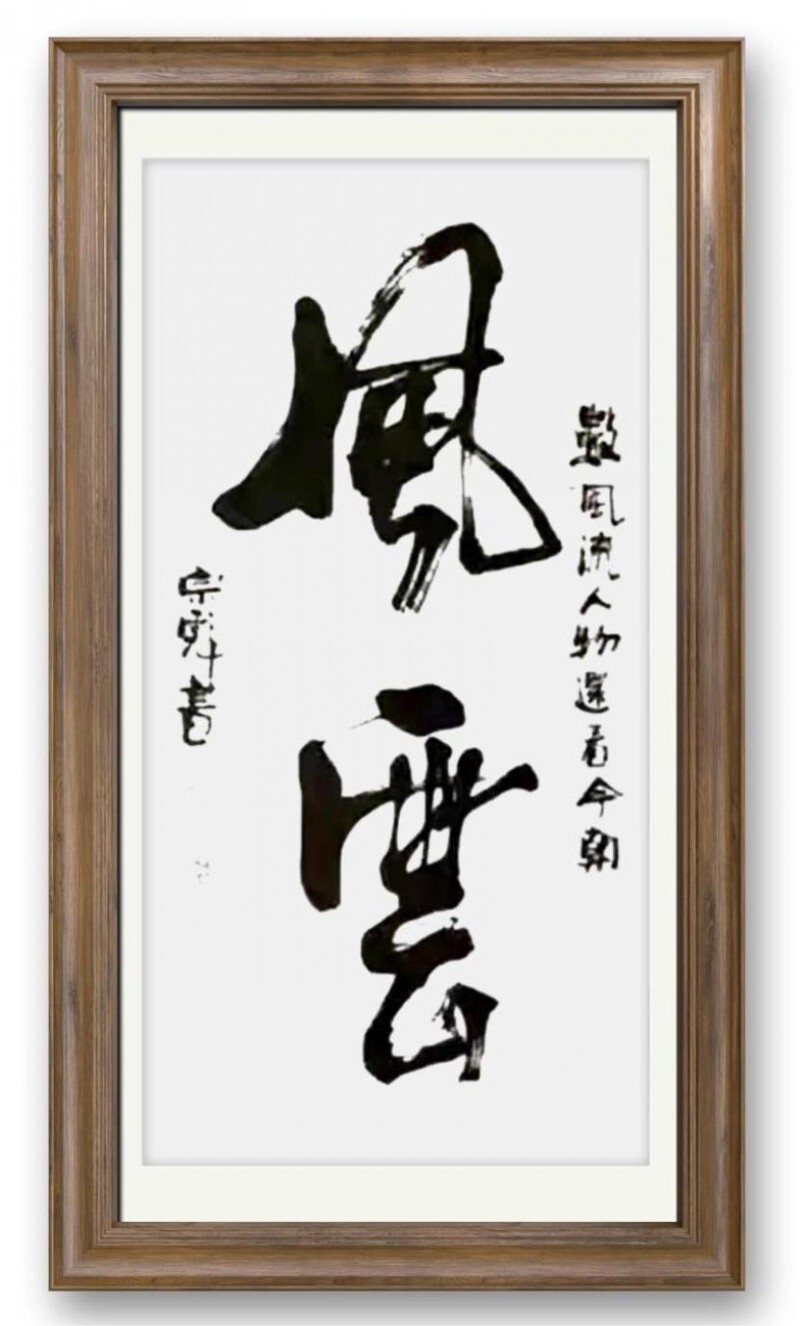 數風流人物還看今朝
風雲
宗舜書